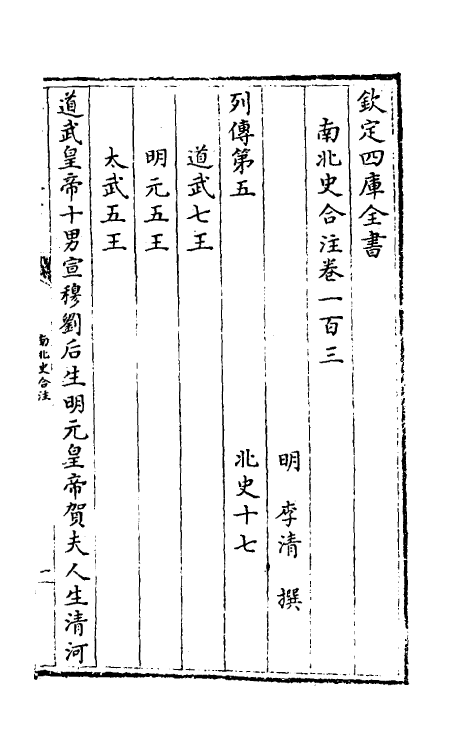 欽定四庫全書
南北史合注卷一百三
明 李清 撰
列傳第五 北史十七
道武七王
明元五王
太武五王
道武皇帝十男宣穆劉后生明元皇帝賀夫人生清河
南北史合注
一